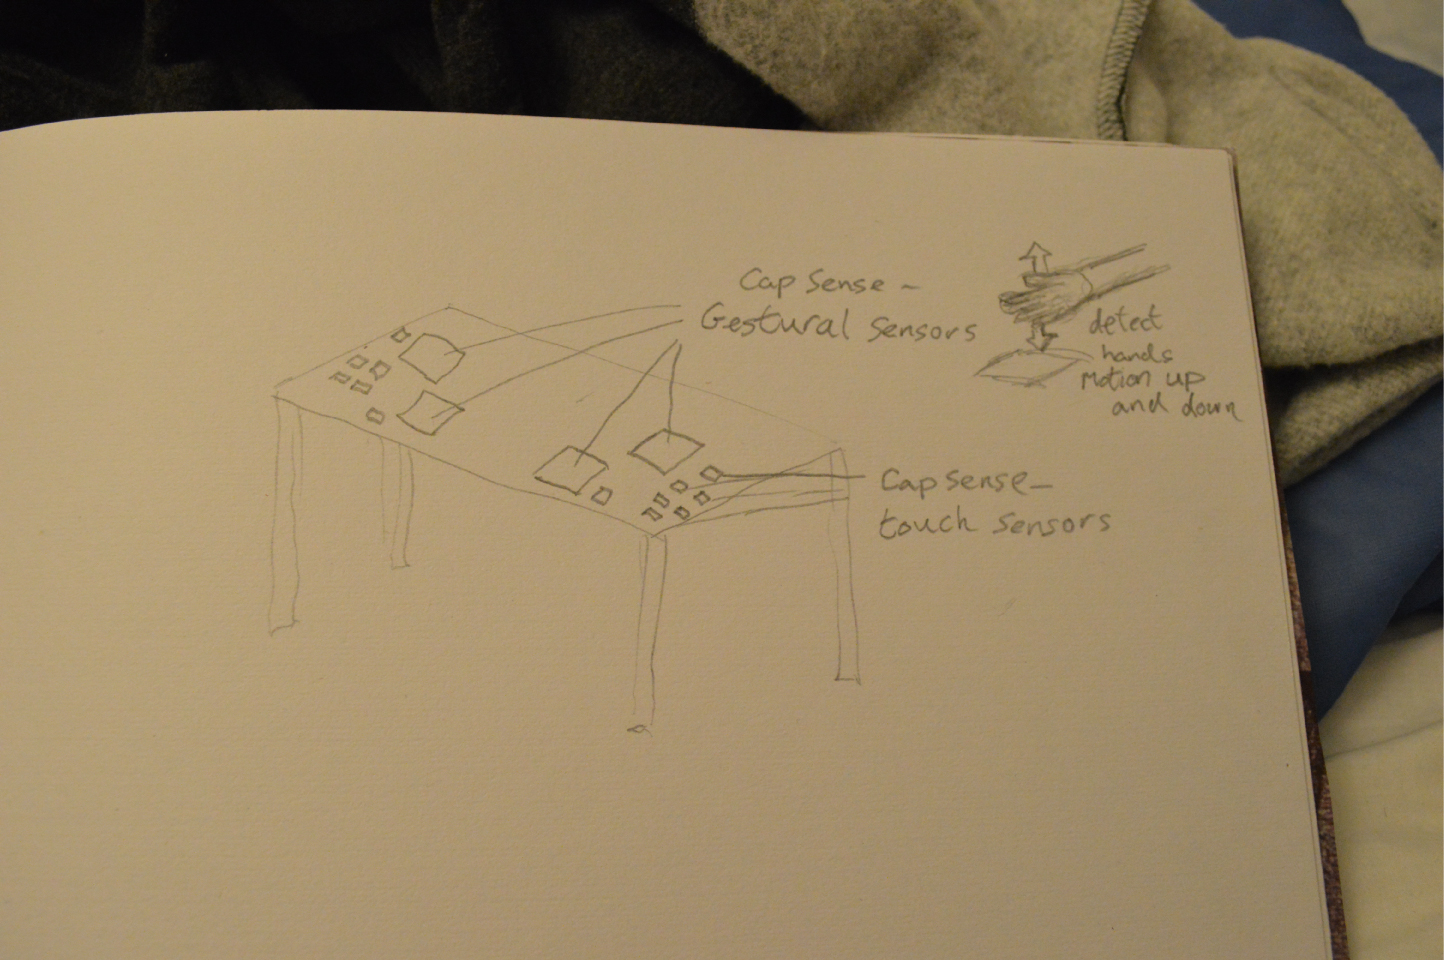 Cap Sense -
Gestural sensors
detect
hands
Motion up
and down
Cap sense -
touch sensors